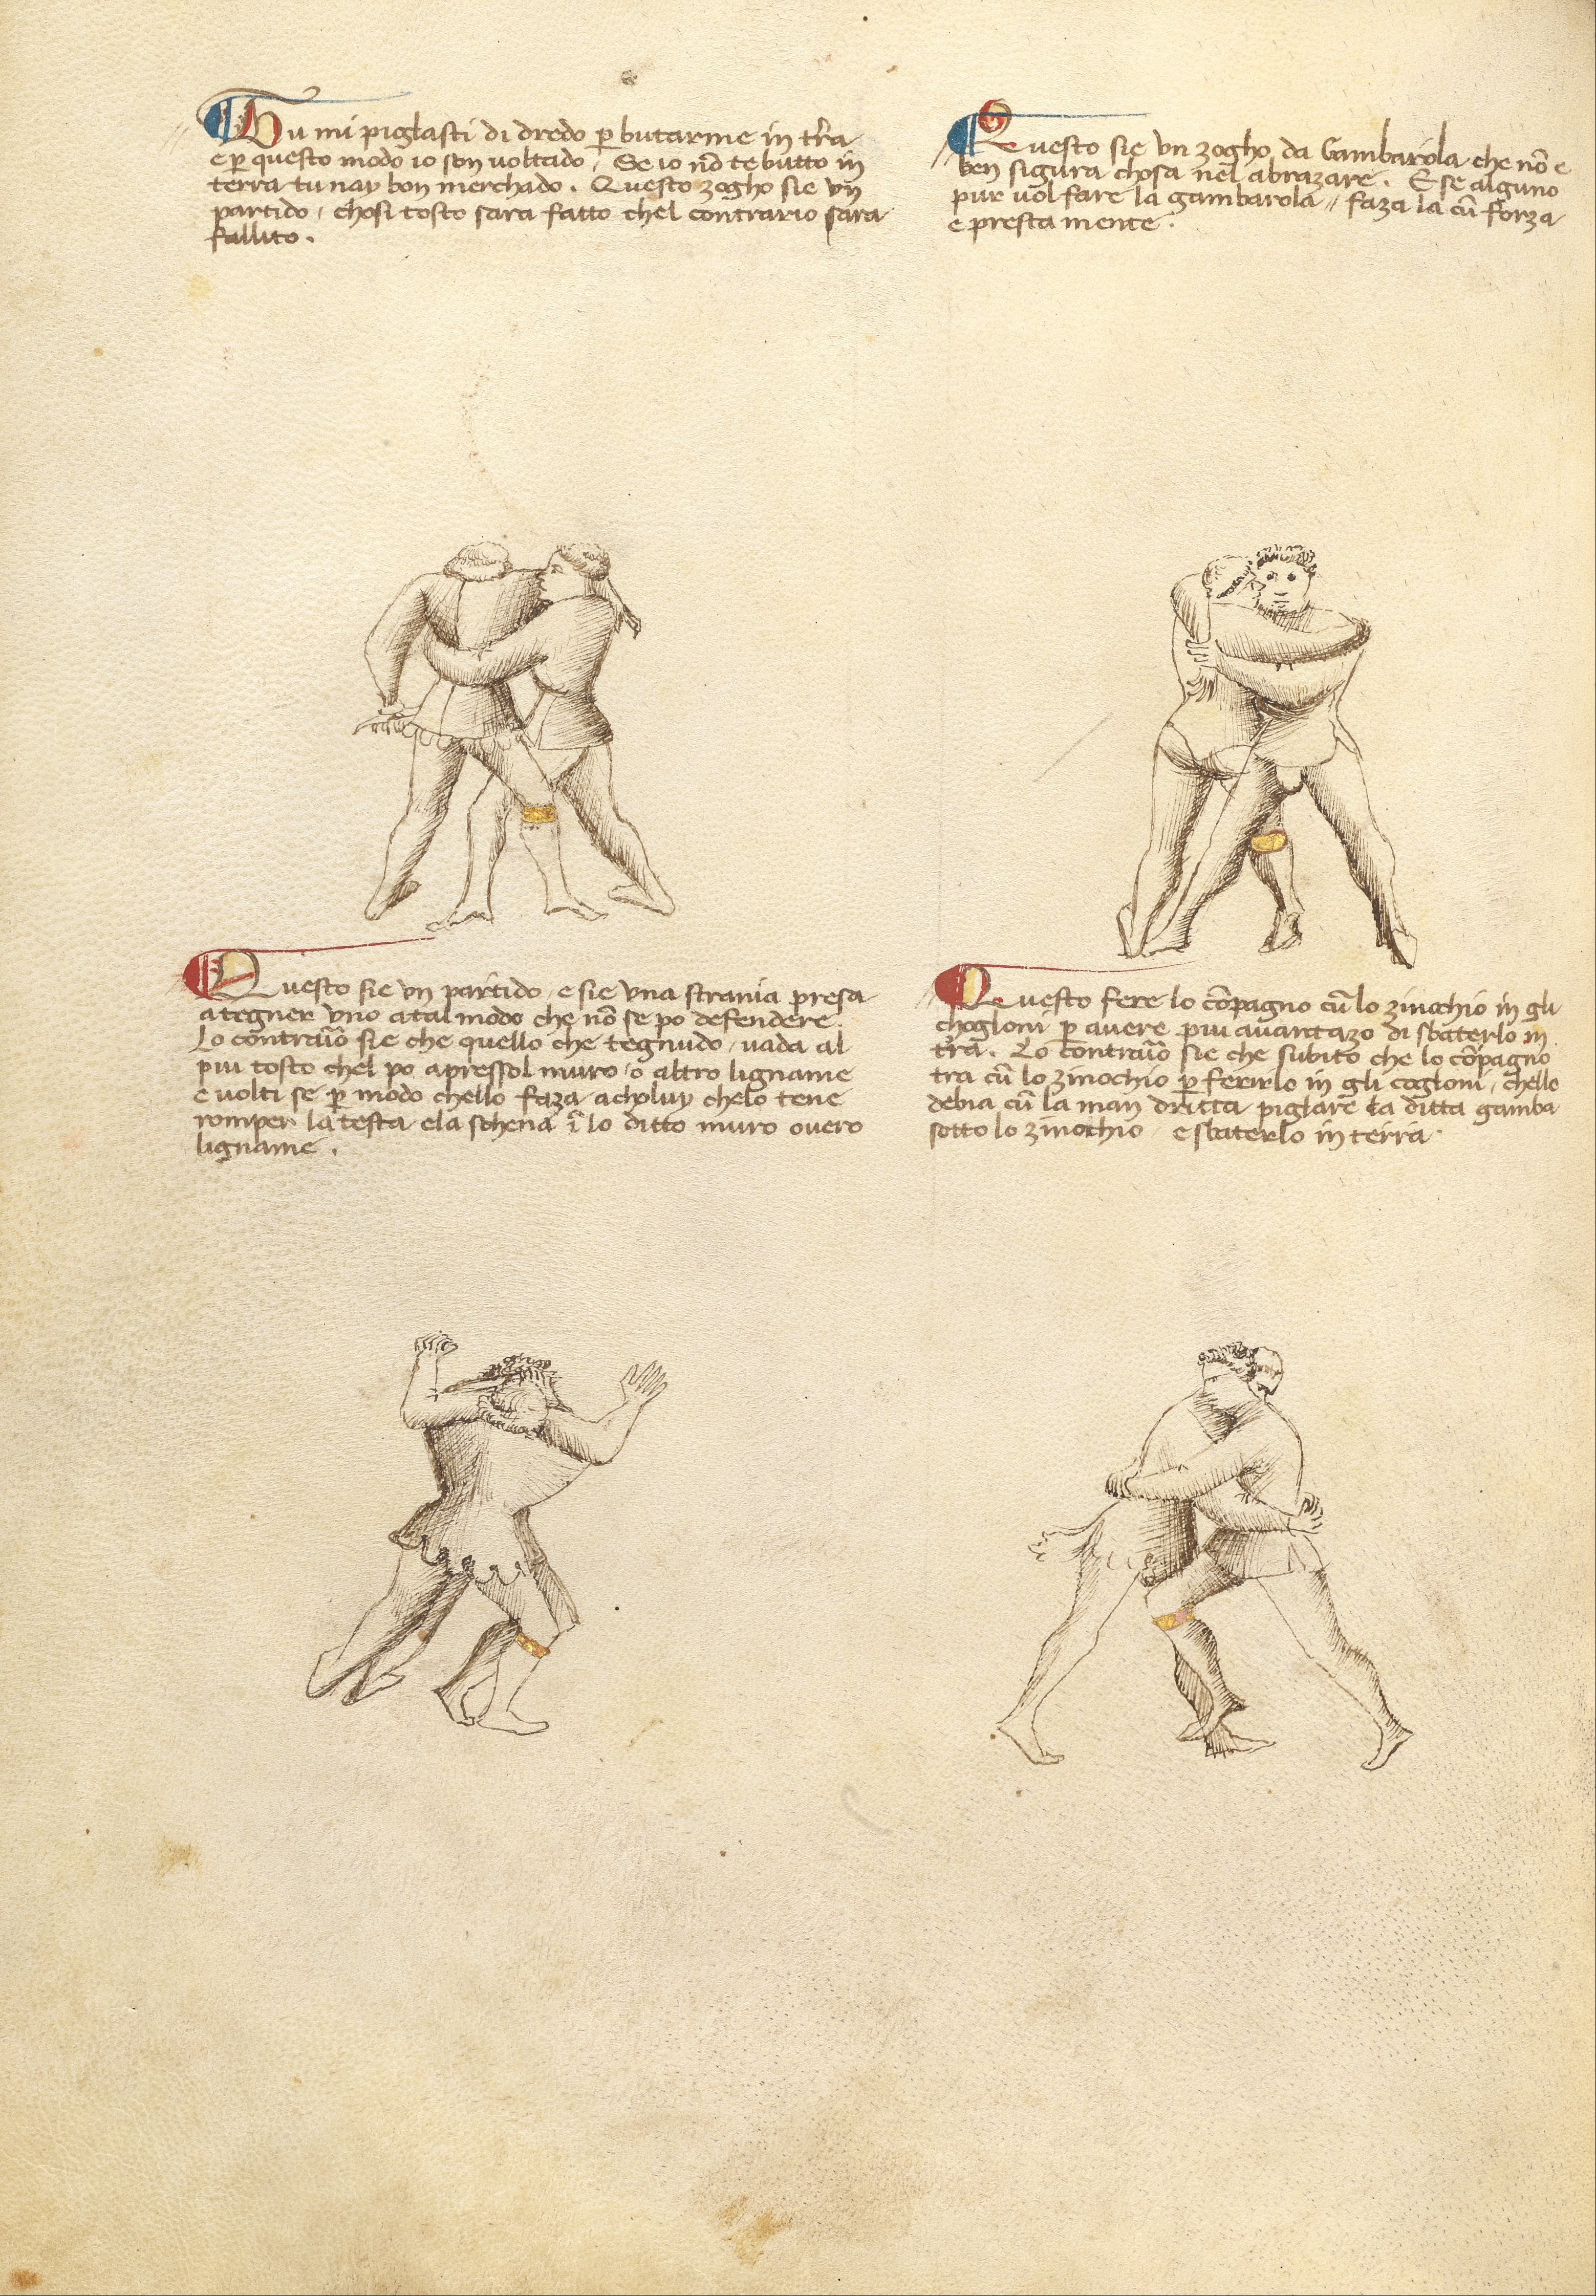 Tu mi piglasti di dredo p̱ butarme in tr̃a
e p̱ questo modo io son voltado / Se io nõ te butto in
terra tu nay bon merchado . Questo zogho sie vn
partido / chosi tosto sara fatto chel contrario sara
fallito .
Questo sie vn zogho da Gambarola che nõ e
ben sigura chosa nel abrazare . E se alguno
pur vol fare la gambarola // faza la cũ forza
e presta mente .
Questo sie vn partido / e sie vna strania presa
a tegner vno a tal modo che nõ se po defendere .
Lo contrãio sie che quello che tegnudo / vada al
piu tosto chel po apressol muro / o altro ligname
e volti se p̱ modo chello faza a choluy chelo tene
romper la testa e la schena ĩ lo ditto muro overo
ligname .
Questo fere lo cõpagno cũ lo zinochio in gli
chogloni p̱ avere piu avantazo di sbaterlo in
tr̃a . Lo contrãio sie che subito che lo cõpagno
tra cũ lo zinochio p̱ ferirlo in gli cogloni / chello
debia cũ la man dritta piglare la ditta gamba
sotto lo zinochio / e sbaterlo in terra .